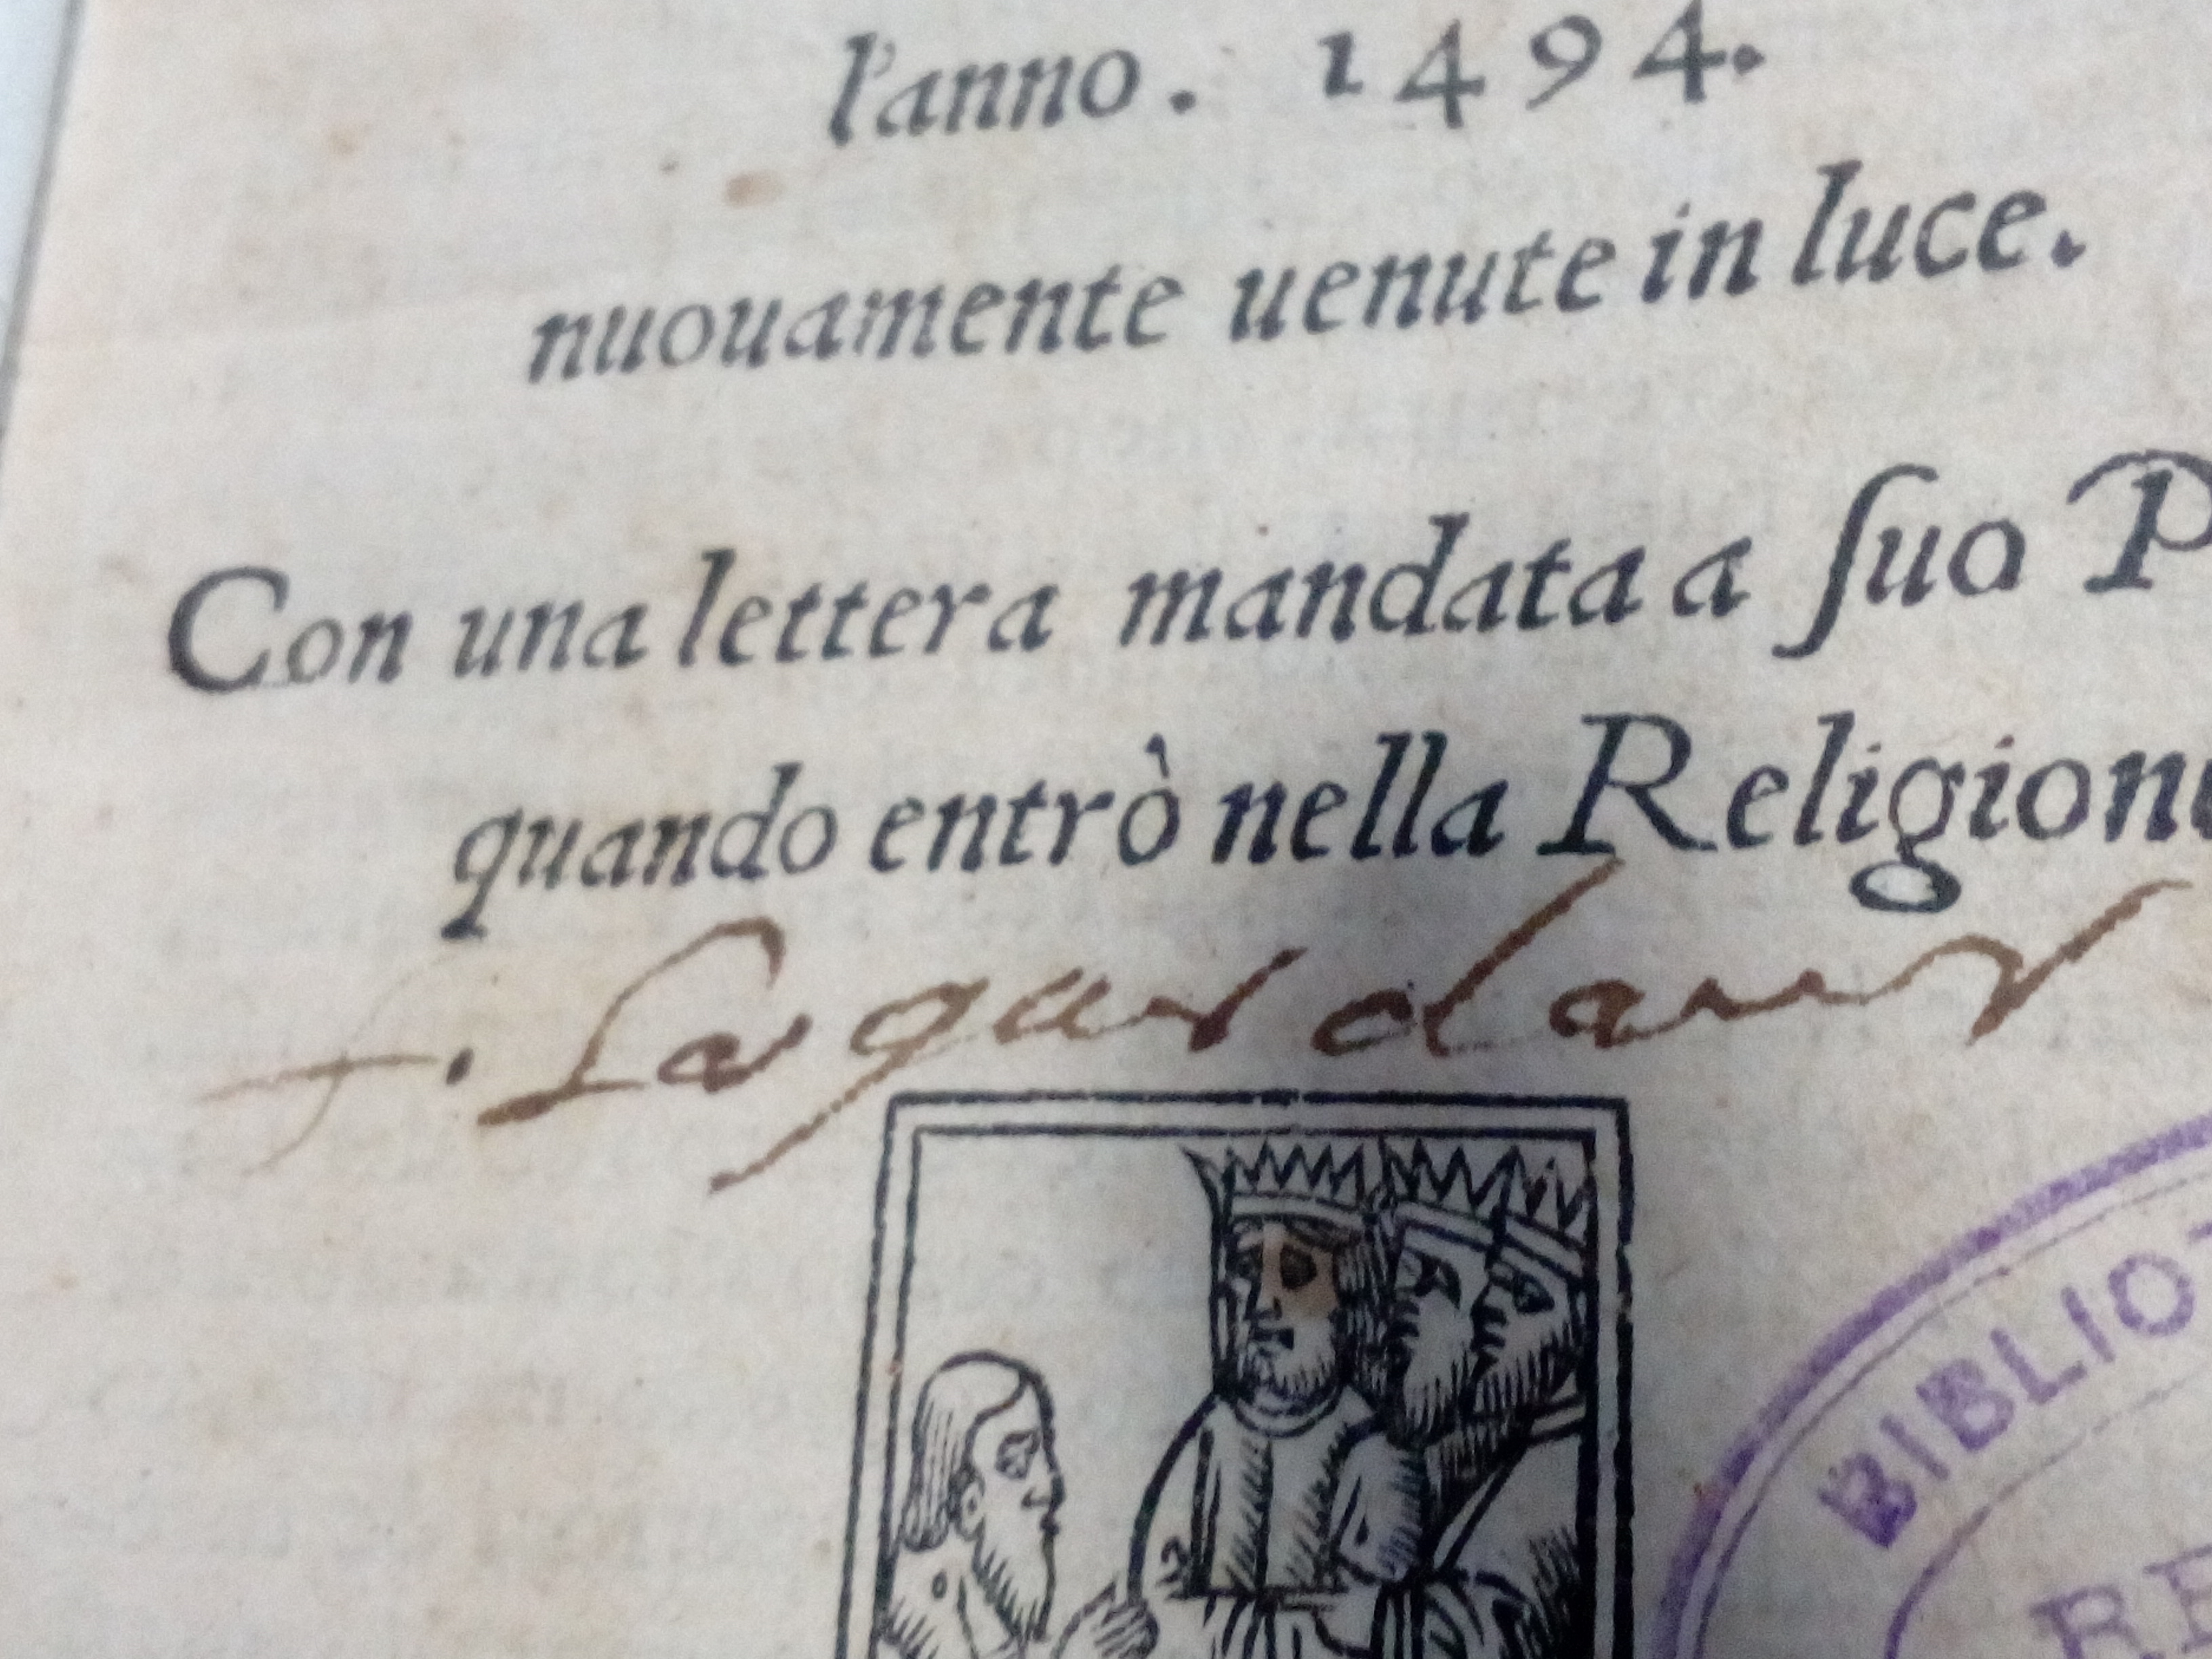 l'anno. 1494.
nuouamente uenute in luce.
Con una lettera mandata a ſuo P
quando entrò nella Religion
BIBLIO
RE